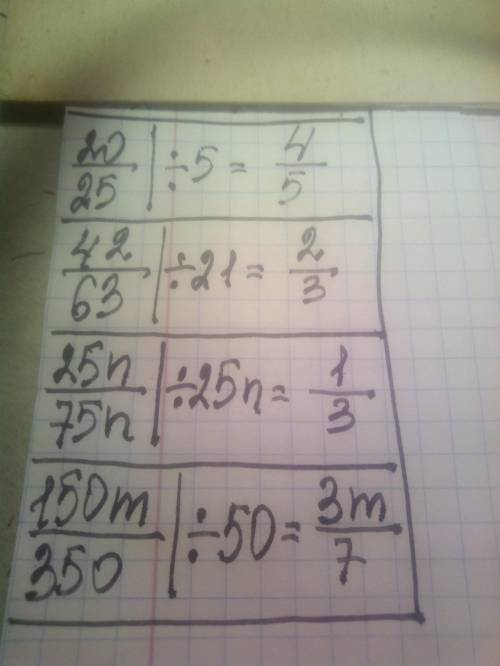 20/25 | ÷5 = 4/5
42/63 | ÷21 = 2/3
25n/75n | ÷25n = 1/3
150m/350 | ÷50 = 3m/7